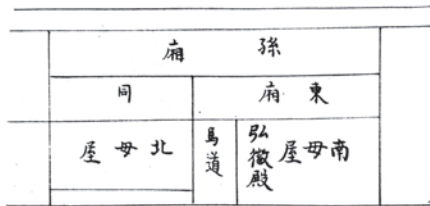 孫廂
東廂
同
南母屋
弘徽殿
馬道
北母屋